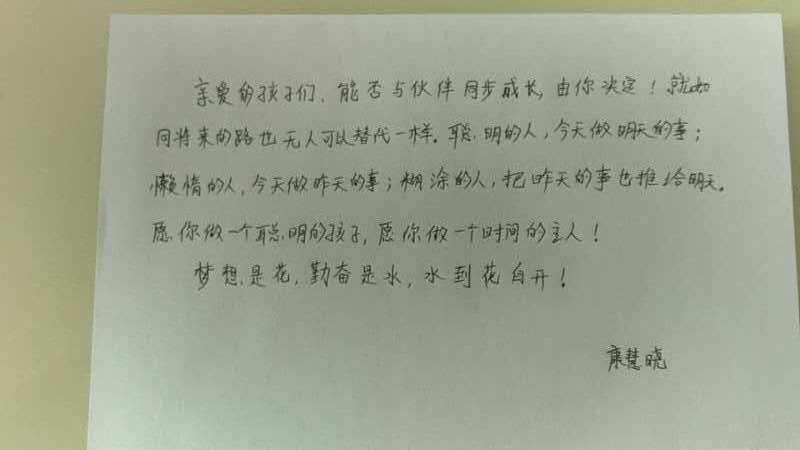 亲爱的孩子们、能否与伙伴同步成长,由你决定!就如
同将来的路也无人可以替代一样。聪明的人,今天做明天的事;
懒惰的人,今天做昨天的事;糊涂的人,把昨天的事也推给明天。
愿你做一个聪明的孩子,愿你做一个时间的主人!
梦想是花,勤奋是水,水到花自开!
康慧晓